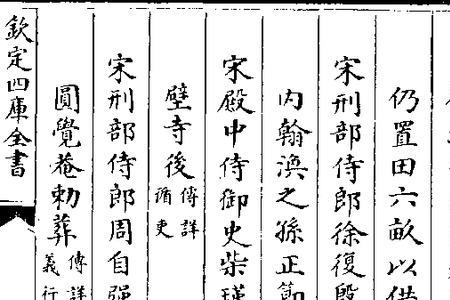 仍置田六畝以供
宋刑部侍郎徐復殷
内翰渙之孫正節
宋殿中侍御史柴瑾
壁寺後傳詳循吏
宋刑部侍郎周自强
圓覺菴勅葬傳詳義行
欽定四庫全書